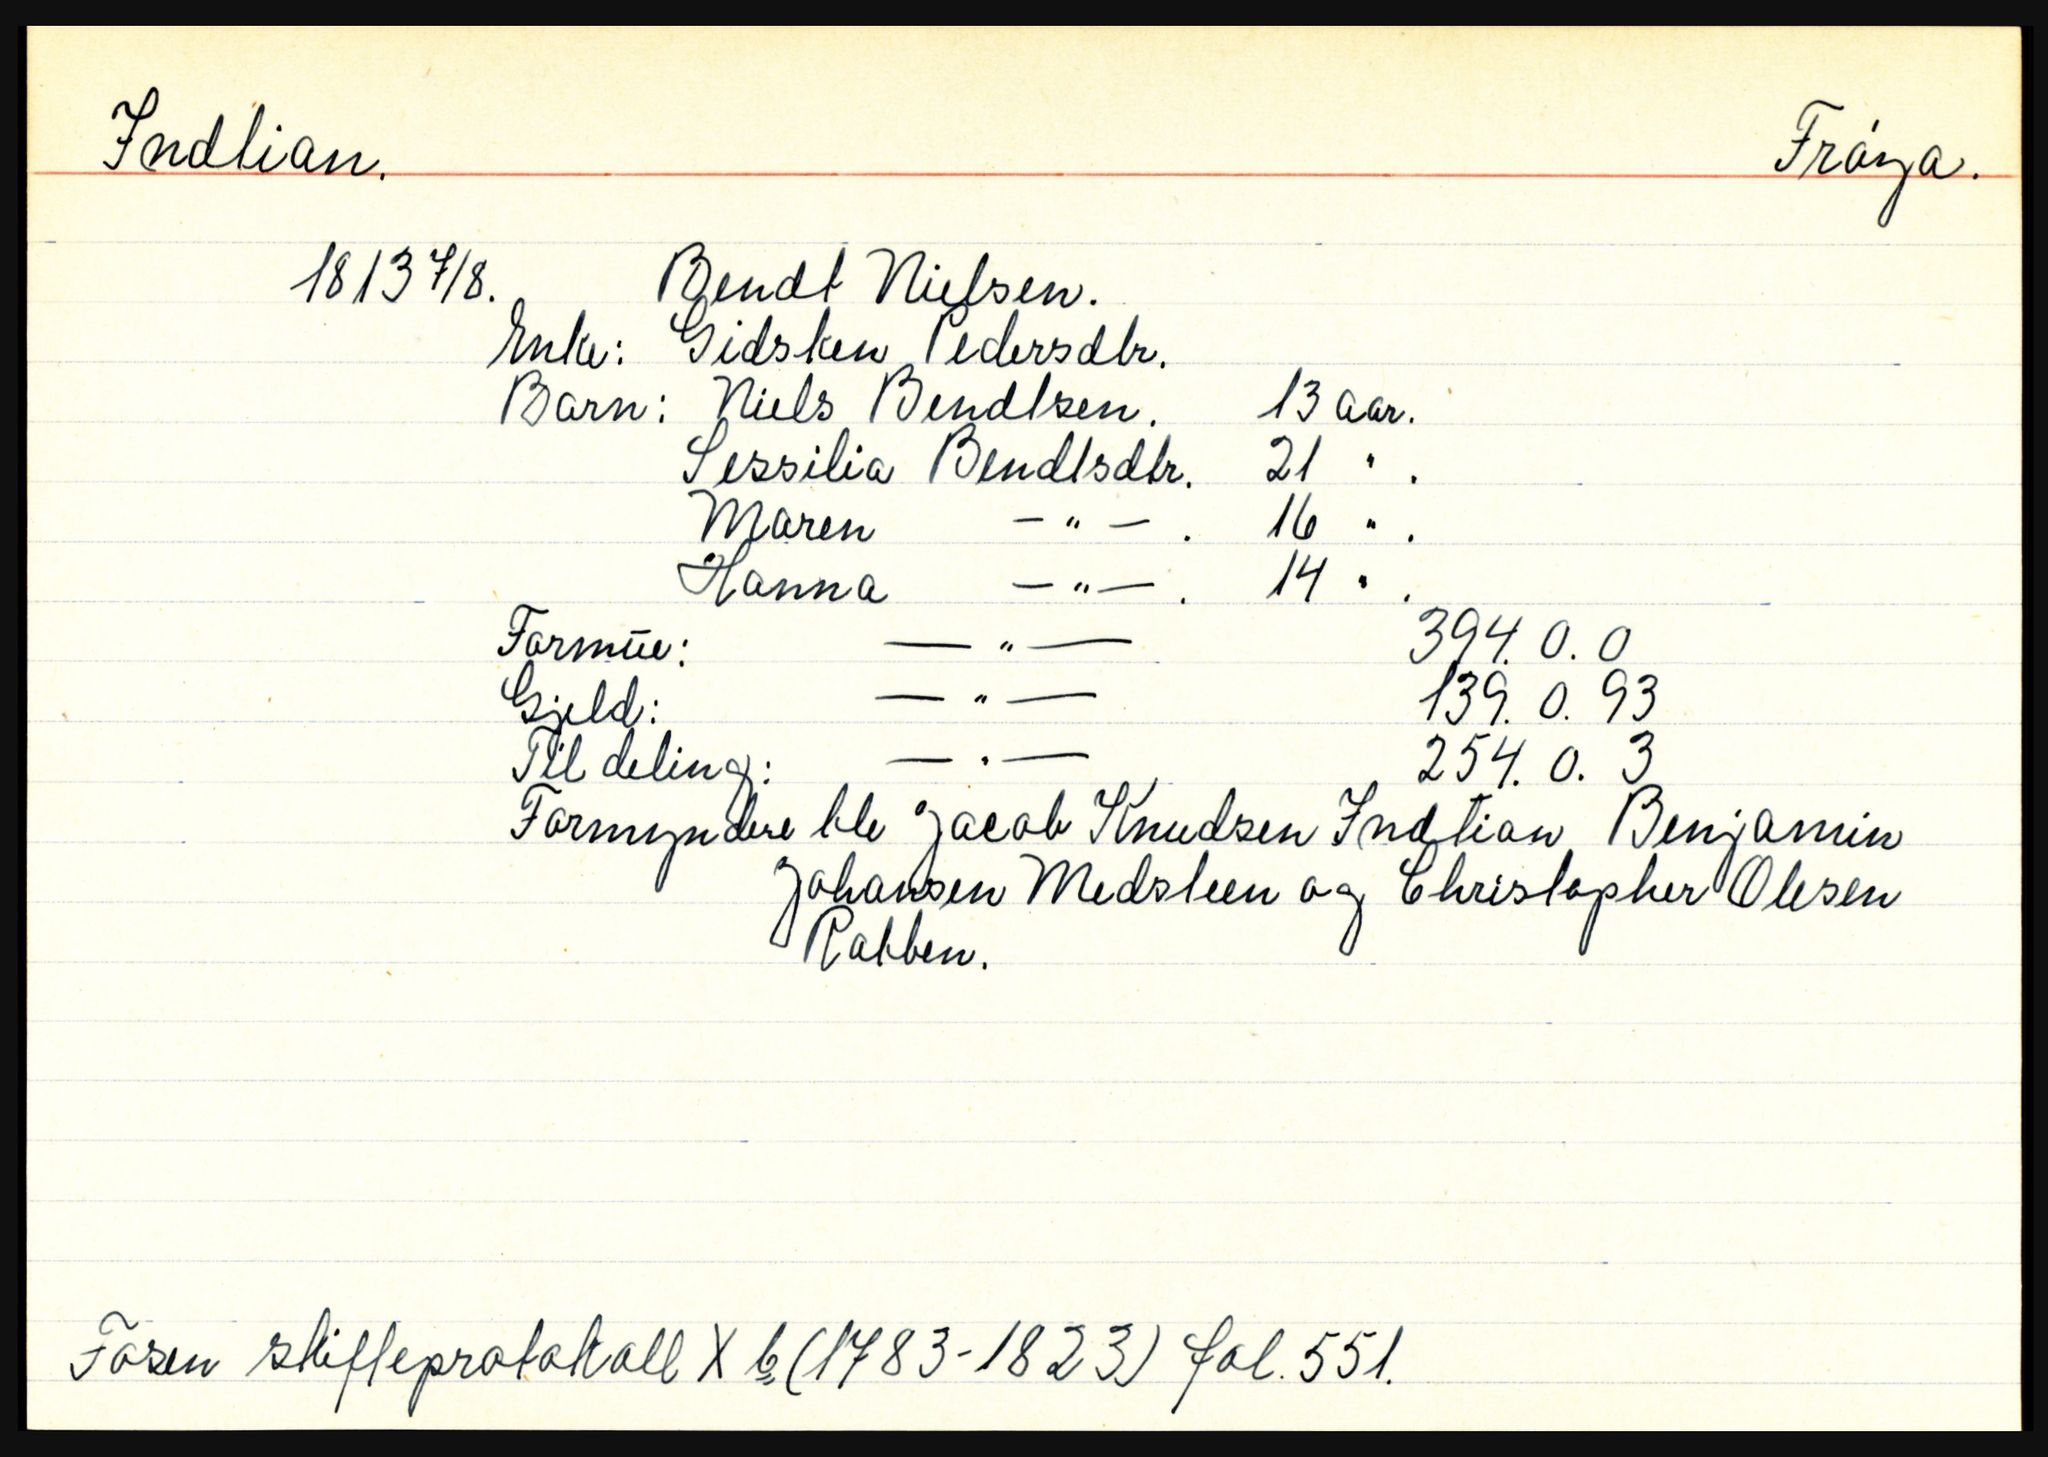 Indtian. Frøya.
1813 7/8. Bendt Nielsen.
Enke: Gidsken Pedersdtr.
Barn: Niels Bendtsen. 13 aar.
Sessilia Bendtsdtr. 21 " .
Maren — " — . 16 " .
Hanna — " — . 14 " .
Formue: — " — 394. 0. 0
Gjeld: — " — 139. 0. 93
Til deling: — " — 254. 0. 3
Formyndere ble Jacob Knudsen Indtian Benjamin
Johansen Medsteen og Christopher Olesen
Rabben.
Fosen skifteprotokoll X b (1783-1823) fol. 551.